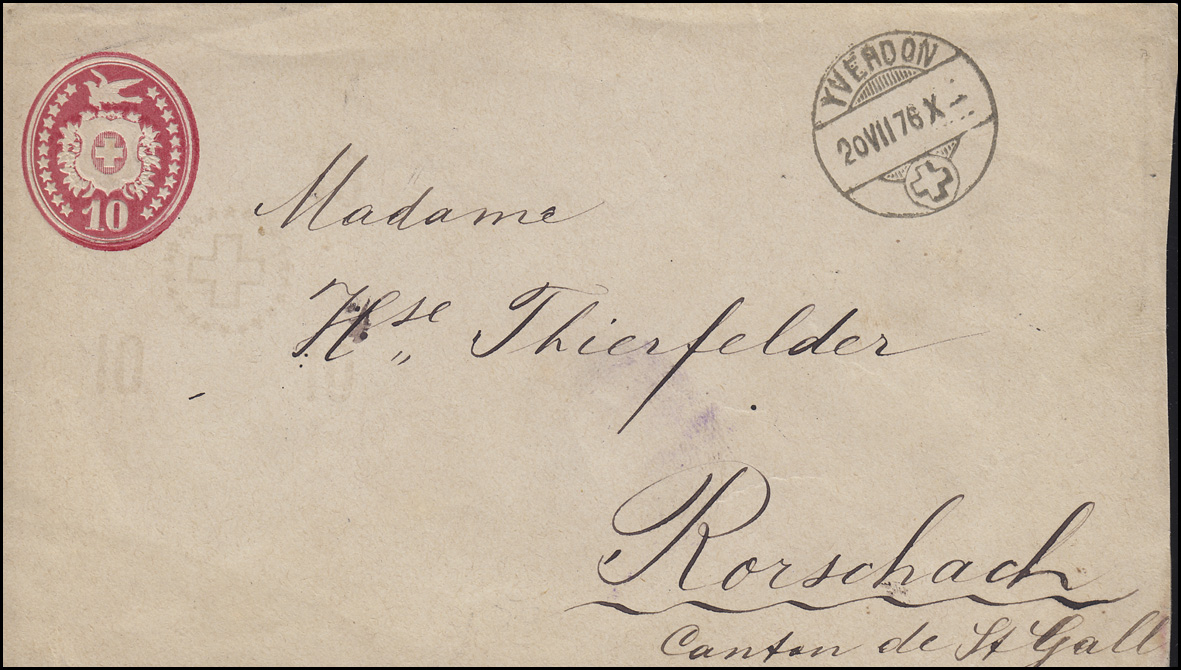 10
YVERDON
20 VII 76 X
Madame
Hse Thierfelder
10 10
Rorschach
Canton de St Gall